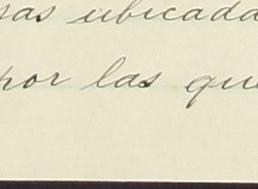 ras ubicada
por las que